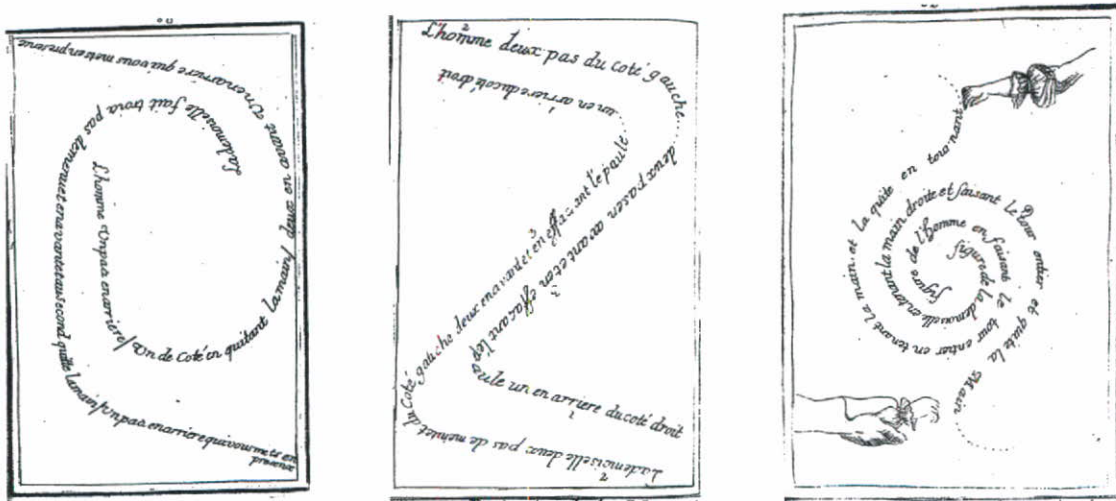 L'homme Un pas en arriere / Un de Coté en quitant la main / deux en avant Un en arriere qui vous mets en presence
La demoiselle fait trois pas de menuet en avant et au second quitte la main / Un pas en arriere qui vous mets en presence
L'homme deux pas du coté gauche deux pas en avant et en effaçant l'epaule un en arriere du coté droit
2
2
1
La demoiselle deux pas de menuet du coté gauche deux en avant et en effaçant l'épaule un en arriere du coté droit
2
3
1
figure de l'homme en faisant le tour entier en tenant la main et la quite en tournant
figure de la demoiselle en tenant la main droite et faisant le Tour entier et quite la Main